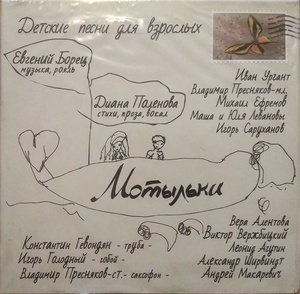 Детские песни для взрослых
Евгений Борец
музыка, рояль
Диана Поленова
стихи, проза, вокал
Иван Ургант
Владимир Пресняков-мл.
Михаил Ефремов
Маша и Юля Левановы
Игорь Саруханов
Мотыльки
Константин Гевондян - труба -
Игорь Голодный - гобой -
Владимир Пресняков-ст. - саксофон -
Вера Алентова
Виктор Вержбицкий
Леонид Агутин
Александр Ширвиндт
Андрей Макаревич